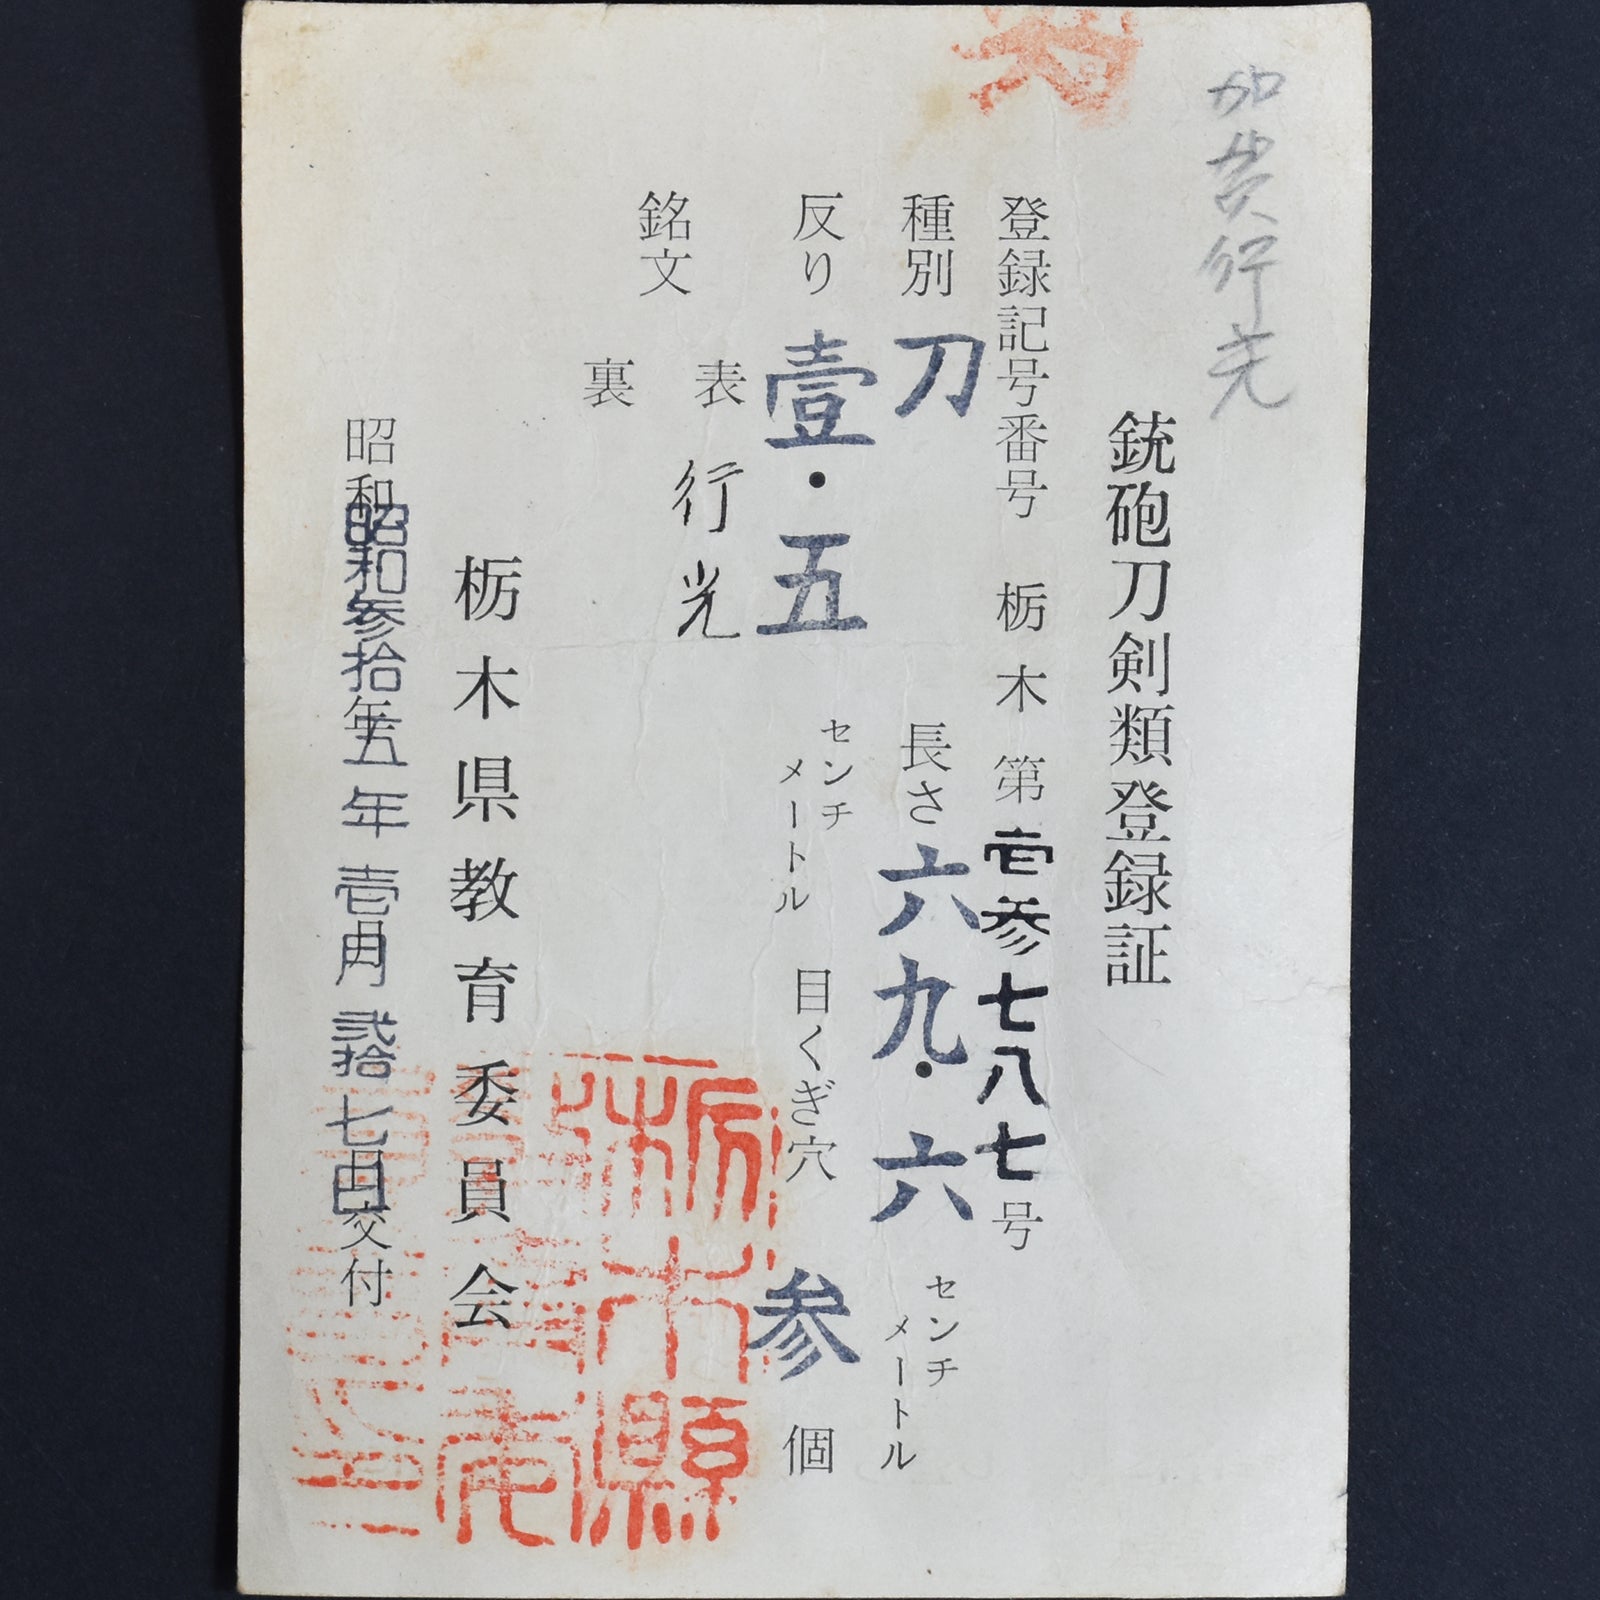 加賀行光
銃砲刀剣類登録証
登録記号番号 栃木 第壱参七八七号
種別 刀 長さ 六九・六 センチメートル
反り 壹・五 センチメートル 目くぎ穴 参 個
銘文 表 行光
裏
栃木県教育委員会
昭和昭和参拾年五年壱月月弐拾七日日交付
栃木縣